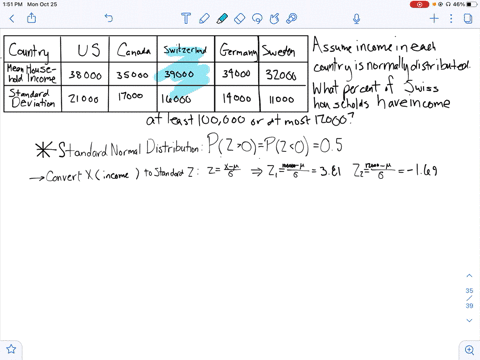 1:51 PM Mon Oct 25
46%
Country US Canada Switzerland Germany Sweden
Mean House-hold Income 38000 35000 39000 34000 32000
Standard Deviation 21000 17000 16000 14000 11000
Assume income in each
country is normally distributed.
What percent of Swiss
households have income
at least 100,000 or at most 12000?
* Standard Normal Distribution: P(Z>0)=P(Z<0)=0.5
→ Convert X (income) to Standard Z: Z=(x-μ)/σ ⇒ Z₁=(100000-μ)/σ=3.81 Z₂=(12000-μ)/σ=-1.69
35
/
39